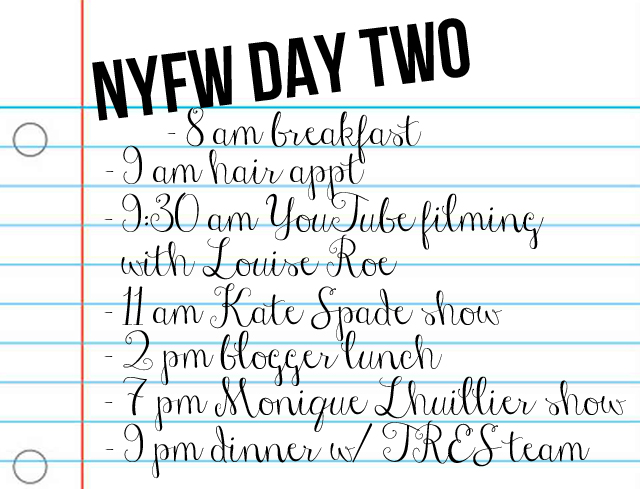 NYFW DAY TWO
- 8 am breakfast
- 9 am hair appt
- 9:30 am YouTube filming
with Louise Roe
- 11 am Kate Spade show
- 2 pm blogger lunch
- 7 pm Monique Lhuillier show
- 9 pm dinner w/ TRES team